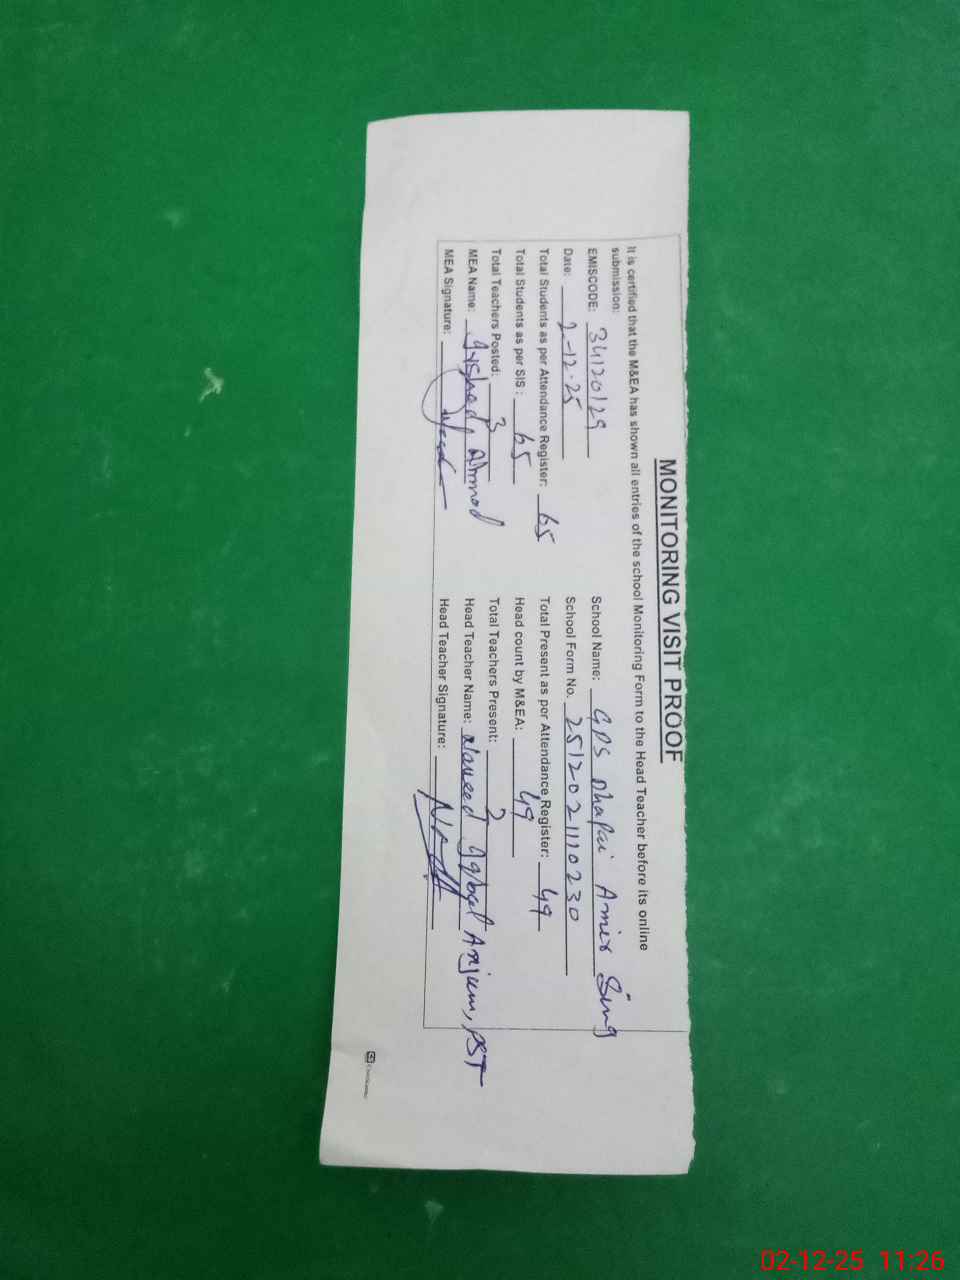 MONITORING VISIT PROOF
It is certified that the M&EA has shown all entries of the school Monitoring Form to the Head Teacher before its online
submission:
EMISCODE: 34120129 School Name: GPS Dhapai Amir Sing
Date: 2-12-25 School Form No. 2512021110230
Total Students as per Attendance Register: 65 Total Present as per Attendance Register: 49
Total Students as per SIS: 65 Head count by M&EA: 49
Total Teachers Posted: 3 Total Teachers Present: 2
MEA Name: Ahmad Head Teacher Name: Naveed Iqbal Anjum, PST
MEA Signature: Head Teacher Signature:
02-12-25 11:26